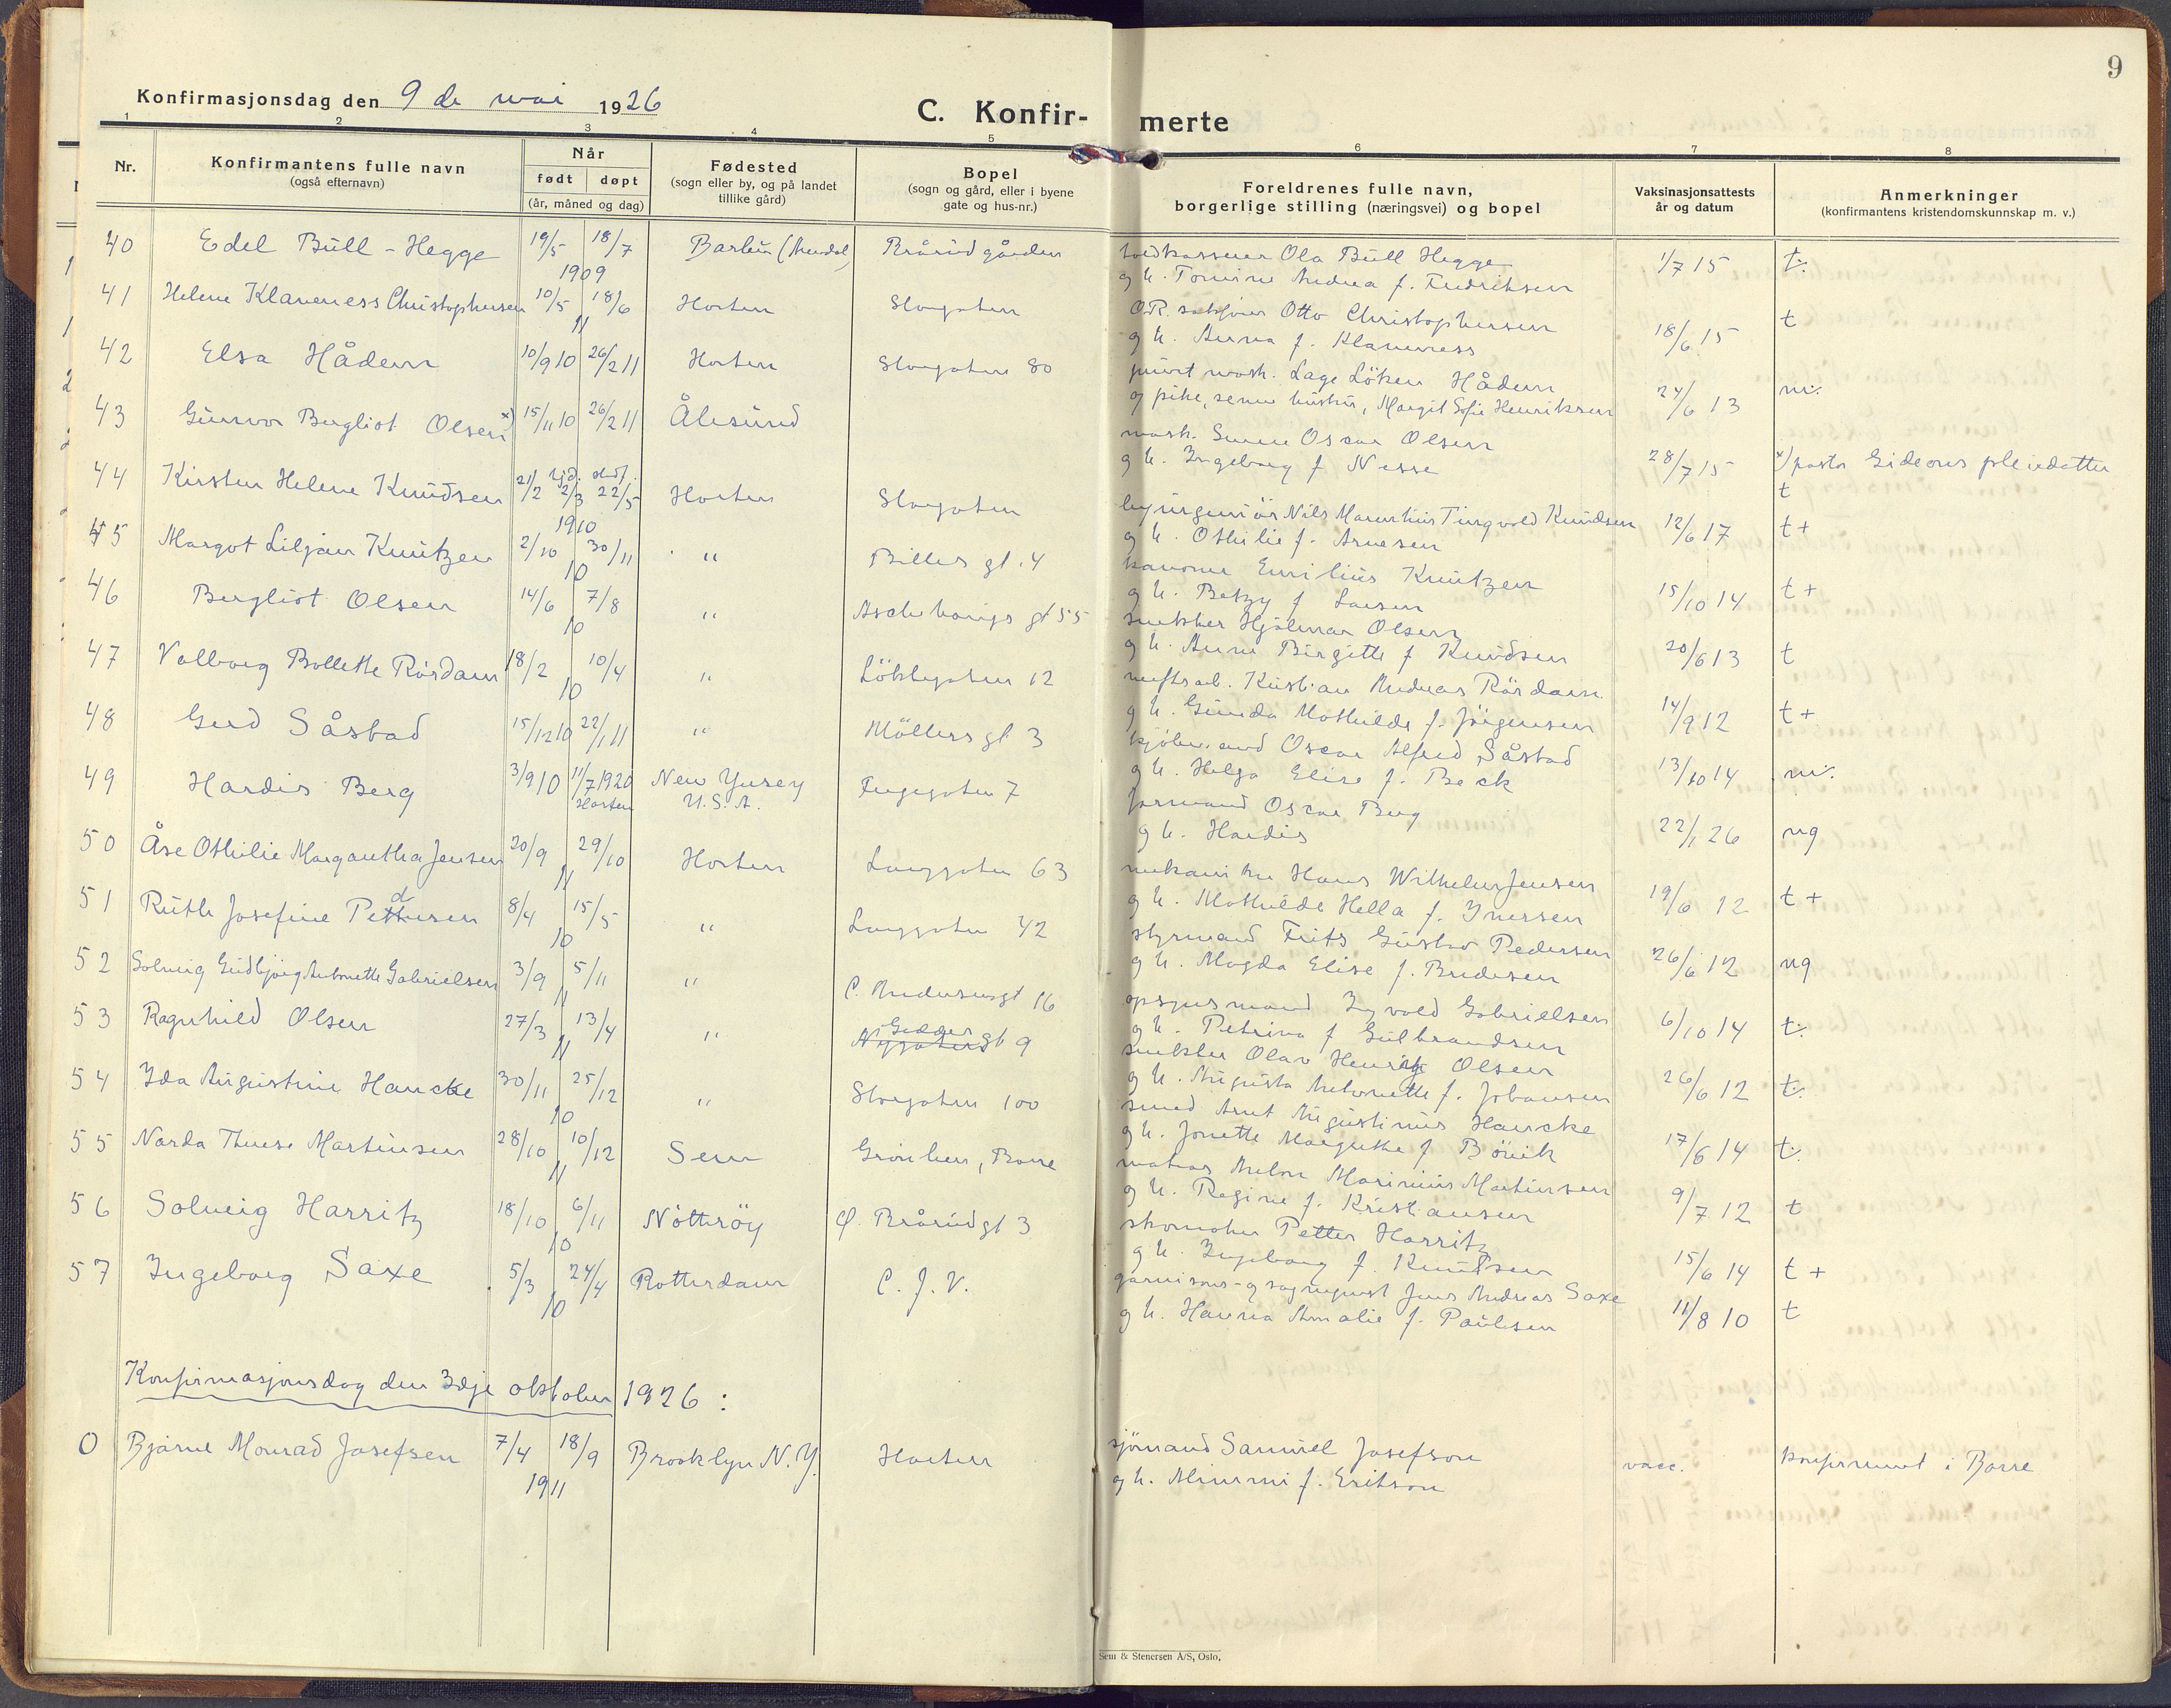 9
Konfirmasjonsdag den 9 de mai 1926
C. Konfir- merte
1 2 3 4 5 6 7 8
Nr. Konfirmantens fulle navn (også efternavn) Når født døpt (år, måned og dag) Fødested (sogn eller by, og på landet tillike gård) Bopel (sogn og gård, eller i byene gate og hus-nr.) Foreldrenes fulle navn, borgerlige stilling (næringsvei) og bopel Vaksinasjonsattests år og datum Anmerkninger (konfirmantens kristendomskunnskap m. v.)
40 Edel Bull-Hegge 19/5 18/7 1909 Barbu (Arendal) Brårudgården tollkasserer Ola Bull Hegge 1/7 15 t÷
g h. Tomine Andrea f. Fredriksen
41 Helene Klaveness Christophersen 10/5 18/6 11 Horten Storgaten O.R. saksfører Otto Christophersen 18/6 15 t
g h. Anna f. Klaveness
42 Elsa Hådem 10/9 10 26/2 11 Horten Storgaten 80 Lage Löken Hådem 24/6 13 m÷
g pike, senere hustru, Margit Sofie Henriksen
43 Gunvor Bergliot Olsen x) 15/11 10 26/2 11 Ålesund mask. Oscar Olsen 28/7 15 x) pastor Gideons pleiedatter
g h. Ingeborg f Nesse t
44 Kirsten Helene Knudsen 21/2 hjd. 2/3 stadf. 22/5 1910 Horten Storgaten Nils Marenhius Tingvold Knudsen 12/6 17 t+
g h. Othilie f. Arnesen
45 Margot Liljan Knutzen 2/10 30/11 10 " Billes gt. 4 kanoner Emilius Knutzen 15/10 14 t+
g h. Betzy f Larsen
46 Bergliot Olsen 14/6 7/8 10 " Aschehougs gt 55 snekker Hjalmar Olsen 20/6 13 t
g h. Anne Birgitte f Knudsen
47 Valborg Bollette Rørdam 18/2 10/4 10 " Løkkegaten 12 verftsarb. Kristian Andreas Rørdam 14/9 12 t+
g h. Gunda Mathilde f. Jørgensen
48 Gerd Såstad 15/12 10 22/1 11 " Møllers gt 3 kjøbmand Oscar Alfred Såstad 13/10 14 m÷
g h. Helga Elise f. Beck
49 Hardis Berg 3/9 10 11/7 1920 Horten New Yersey U.S.A. Tugegaten 7 formand Oscar Berg 22/1 26 ng
g h. Hardis
50 Åse Othilie Margaretha Jensen 20/9 29/10 11 Horten Langgaten 63 mekaniker Hans Wilhelm Jensen 19/6 12 t+
g h. Mathilde Hella f. Iversen
51 Ruth Josefine Pettersen d 8/4 15/5 10 " Langgaten 42 styrmand Frits Gustav Pedersen 26/6 12 ng
g h. Magda Elise f. Bredesen
52 Solveig Gudbjørg Antonette Gabrielsen 3/9 5/11 11 " C. Andersensgt 16 opsynsmand Ingvald Gabrielsen 6/10 14 t÷
g h. Petrina f Gulbrandsen
53 Ragnhild Olsen 27/3 13/4 11 " Nygaten Gedder gt 9 snekker Olav Henrik Olsen 26/6 12 t÷
g h. Augusta Antonette f. Johansen
54 Ida Augustine Hancke 30/11 25/12 10 " Storgaten 100 smed Arnt Augustinus Hancke 17/6 14 t÷
g h. Jonette Margrethe f Børvik
55 Narda Therese Martinsen 28/10 10/12 11 Sem Grønlien, Borre matros Anton Marinius Martinsen 9/7 12 t
g h. Regine f. Kristiansen
56 Solveig Harritz 18/10 6/11 10 Nøtterøy Ø. Brårudgt 3 skomaker Petter Harritz 15/6 14 t+
g h. Ingeborg f. Knutsen
57 Ingeborg Saxe 5/3 24/4 10 Rotterdam C. J. V. garnisons- g sogneprest Jens Andreas Saxe 11/8 10 t
g h. Hanna Amalie f. Paulsen
Konfirmasjonsdag den 3dje oktober 1926:
0 Bjarne Monrad Josefsen 7/4 18/9 1911 Brooklyn N.Y. Horten sjømand Samuel Josefson vacc. konfirmert i Borre
g h. Minmi f. Erikson
Sem & Stenersen A/S, Oslo.